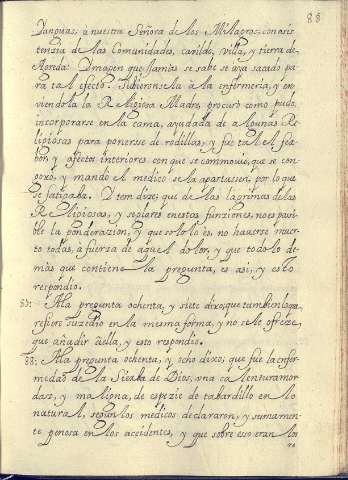 88
Danguas; a nuestra Señora de los Milagros, con asis
tencia de las Comunidades, cavildo, villa, y tierra de
Agreda: Ymagen que jamàs se sabe se aya sacado pa
ra tal efecto. Subieronsela à la enfermeria, y en
viendola la Religiosa Madre, procurò como pudo,
incorporarse en la cama, ayudada de algunas Re
ligiosas para ponerse de rodillas; y fue tal el
y afectos interiores con que se commovió, que se con
y mandó el medico se la apartassen, por lo que
se fatigaba. Ytem dize, que de las lagrimas de las
Religiosas, y seglares en estas funziones, no es pasi
ble la ponderazion, y que solo lo es, no haverse muer
to todas, à fuersa de aquel dolor, y que todo lo de
màs que contiene la pregunta, es asi, y esto
respondio.
A la pregunta ochenta, y siete dixo, que tambien
refiere suzedió en la mesma forma, y no se le ofreze,
que añadir à ella, y esto respondio.
88: A la pregunta ochenta, y ocho dixo; que fue la enfer
medad de la Sierba de Dios, vna calentura mor
daz, y maligna, de espezie de tabardillo en lo
natural, segun los medicos declararon, y sumamen
te penosa en los accidentes, y que sobre eso eran los